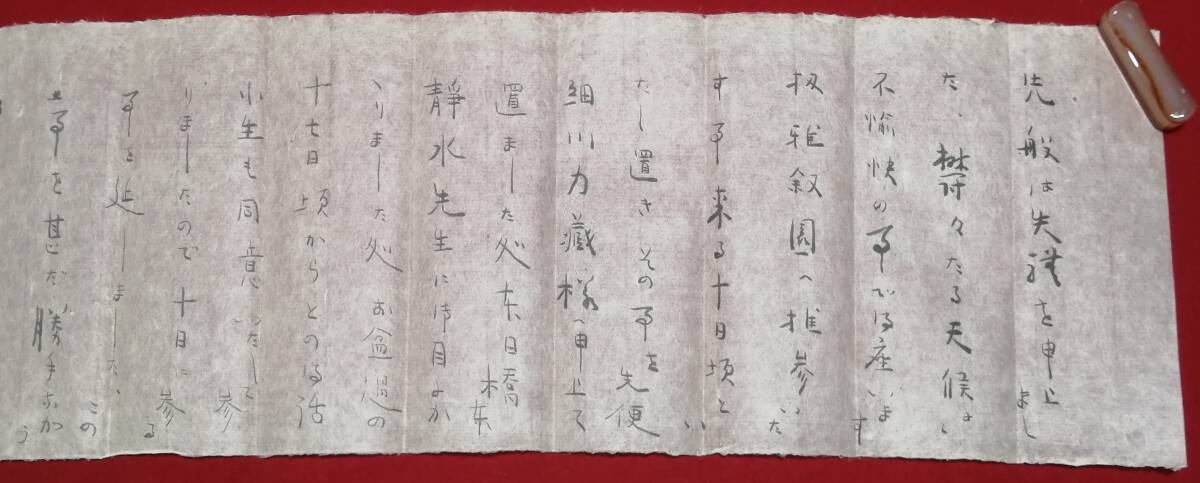 先般は失禮を申上まし
た、鬱々たる天候に
不愉快の事で御座いま
す
扨雅叙園へ推参いた
す事来る十日頃と
いたし置きその事を先便
細川力藏様へ申上て
置ました処本日橋本
靜水先生に御目にかか
りました処お盆過の
十七日頃からとの御話
小生も同意いたして参
りましたので十日に参る
事を延しました、この
事を甚だ勝手なが